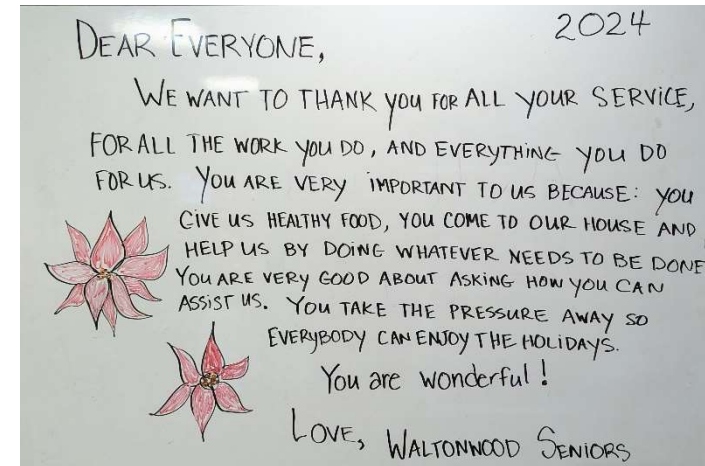 2024
DEAR EVERYONE,
WE WANT TO THANK YOU FOR ALL YOUR SERVICE,
FOR ALL THE WORK YOU DO, AND EVERYTHING YOU DO
FOR US. YOU ARE VERY IMPORTANT TO US BECAUSE: YOU
GIVE US HEALTHY FOOD, YOU COME TO OUR HOUSE AND
HELP US BY DOING WHATEVER NEEDS TO BE DONE
YOU ARE VERY GOOD ABOUT ASKING HOW YOU CAN
ASSIST US. YOU TAKE THE PRESSURE AWAY SO
EVERYBODY CAN ENJOY THE HOLIDAYS.
You are wonderful!
LOVE, WALTONWOOD SENIORS